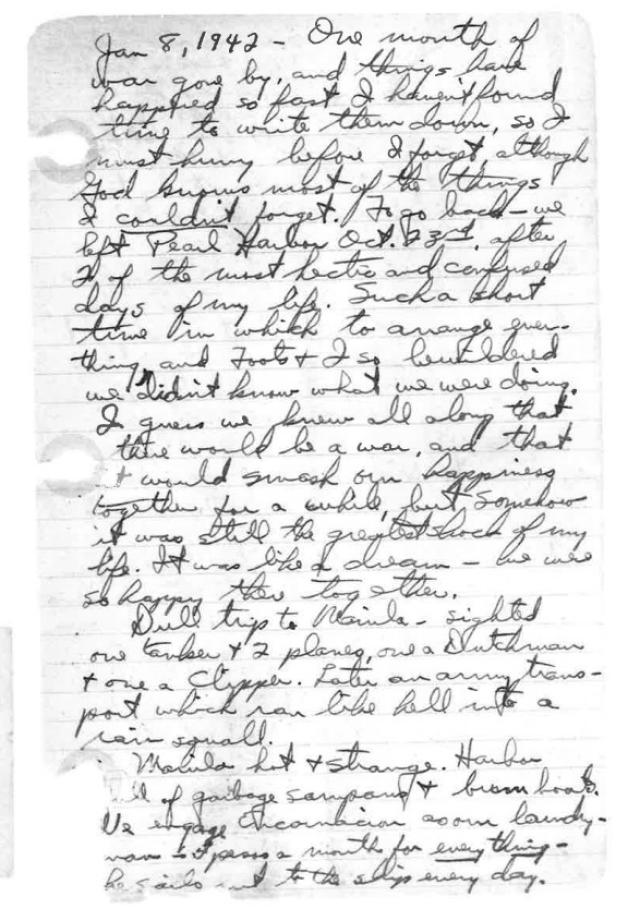 Jan 8, 1942 - One month of
war gone by, and things have
happened so fast I haven't found
time to write them down, so I
must hurry before I forget, although
God knows most of the things
I couldn't forget. To go back - we
left Pearl Harbor Oct. 23rd, after
2 of the most hectic and confused
days of my life. Such a short
time in which to arrange every-
thing, and Toots & I so bewildered
we didn't know what we were doing.
I guess we knew all along that
there would be a war, and that
it would smash our happiness
together for a while, but somehow
it was still the greatest shock of my
life. It was like a dream - we were
so happy there together.
Dull trip to Manila - sighted
one tanker & 2 planes, one a Dutchman
& one a Clipper. Later an army trans-
port which ran like hell into a
rain squall.
Manila hot & strange. Harbor
full of garbage sampans & bum boats.
We engage Encarnacion as our laundry-
man - pesos a month for every thing -
he sails out to the ship every day.